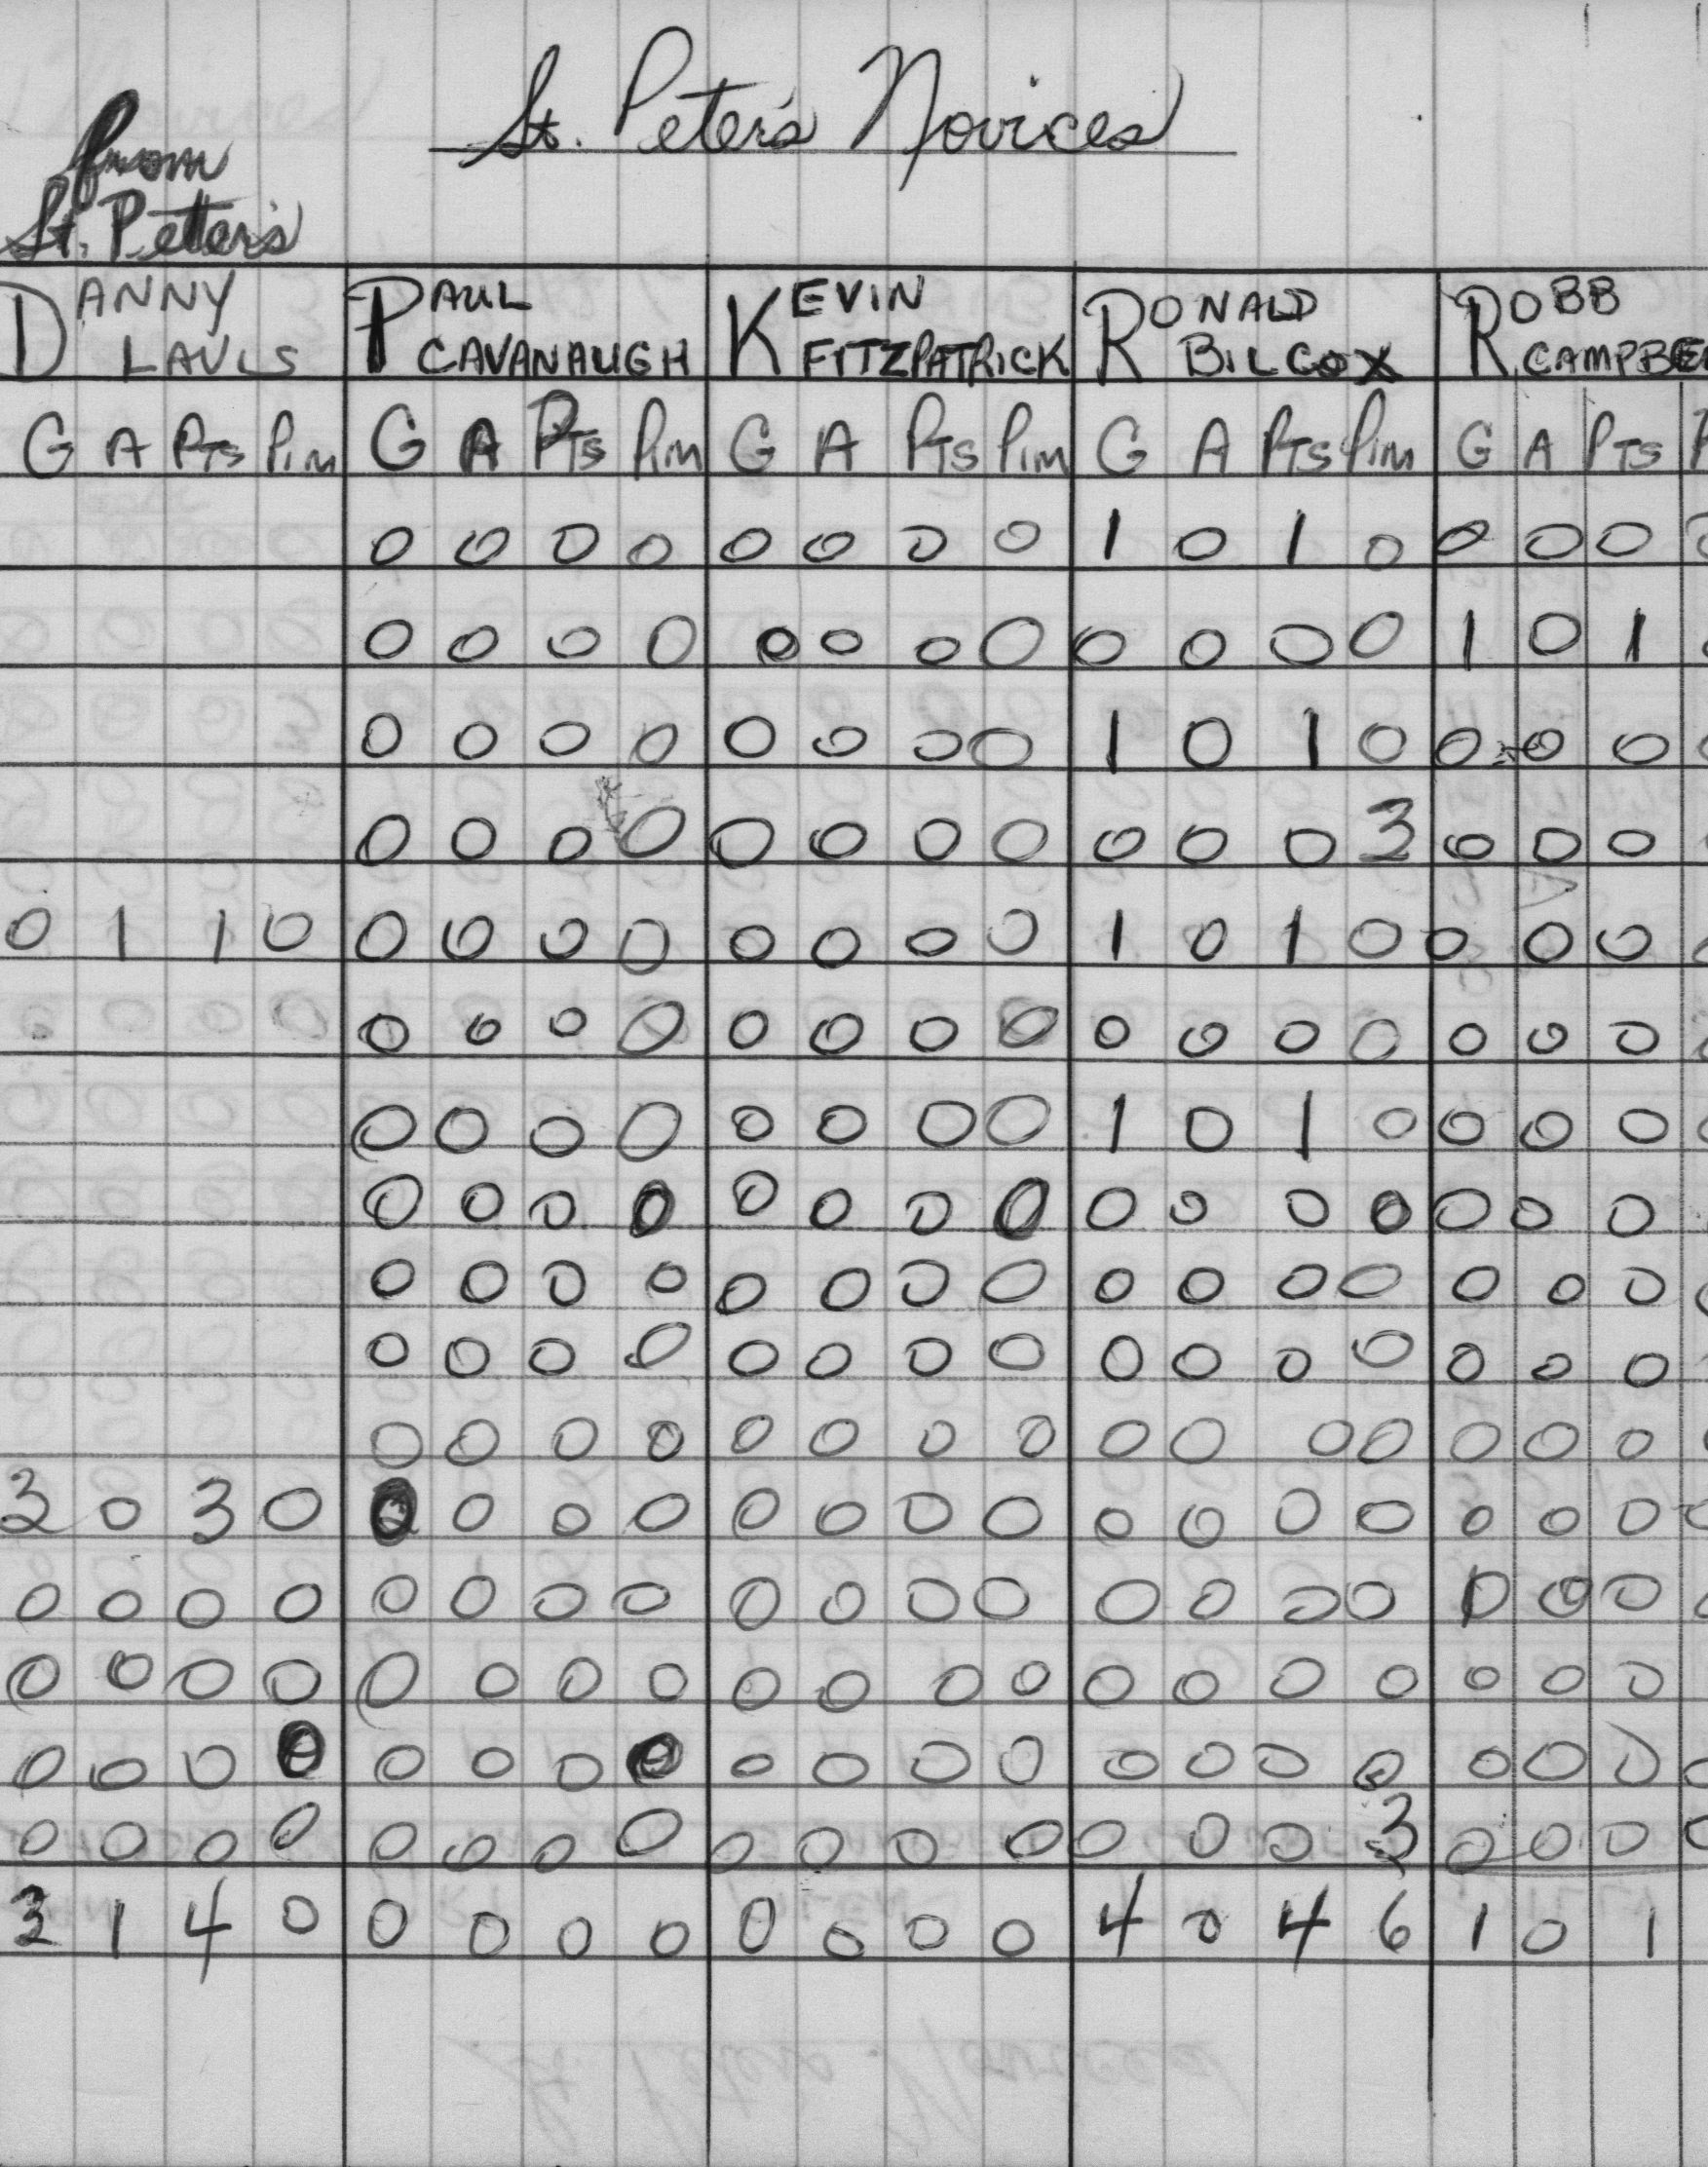 St. Peter's Novices
from
St. Peter's
DANNY PAUL KEVIN RONALD ROBB
CAVANAUGH FITZPATRICK BILCOX
G A PTS Pim G A PTS Pim G A PTS Pim G A PTS Pim G A PTS
0 0 0 0 0 0 0 0 1 0 1 0 0 0 0
0 0 0 0 0 0 0 0 0 0 0 0 1 0 1
0 0 0 0 0 0 0 0 1 0 1 0 0 0 0
0 0 0 0 0 0 0 0 0 0 0 3 0 0 0
0 1 1 0 0 0 0 0 0 0 0 0 1 0 1 0 0 0 0
0 0 0 0 0 0 0 0 0 0 0 0 0 0 0
0 0 0 0 0 0 0 0 1 0 1 0 0 0 0
0 0 0 0 0 0 0 0 0 0 0 0 0 0 0
0 0 0 0 0 0 0 0 0 0 0 0 0 0 0
0 0 0 0 0 0 0 0 0 0 0 0 0 0 0
0 0 0 0 0 0 0 0 0 0 0 0 0 0 0
3 0 3 0 0 0 0 0 0 0 0 0 0 0 0 0 0 0 0
0 0 0 0 0 0 0 0 0 0 0 0 0 0 0 0 0 0 0
0 0 0 0 0 0 0 0 0 0 0 0 0 0 0 0 0 0 0
0 0 0 0 0 0 0 0 0 0 0 0 0 0 0 0 0 0 0
0 0 0 0 0 0 0 0 0 0 0 0 0 0 0 3 0 0 0
3 1 4 0 0 0 0 0 0 0 0 0 4 0 4 6 1 0 1